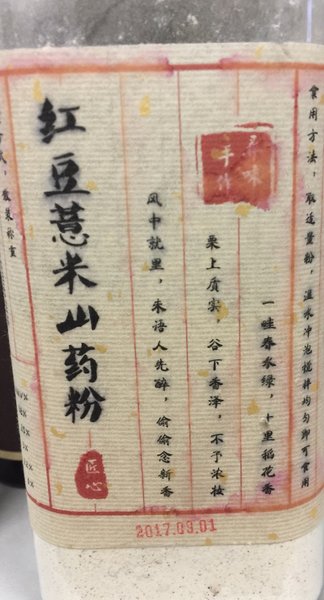 食用方法：取适量粉，温水冲泡搅拌均匀即可食用
一畦春水绿，十里稻花香
粟上质实，谷下香泽，不予浓妆
风中就里，未语人先醉，偷偷愈新香
红豆薏米山药粉
匠心
散装称重
2017.09.01